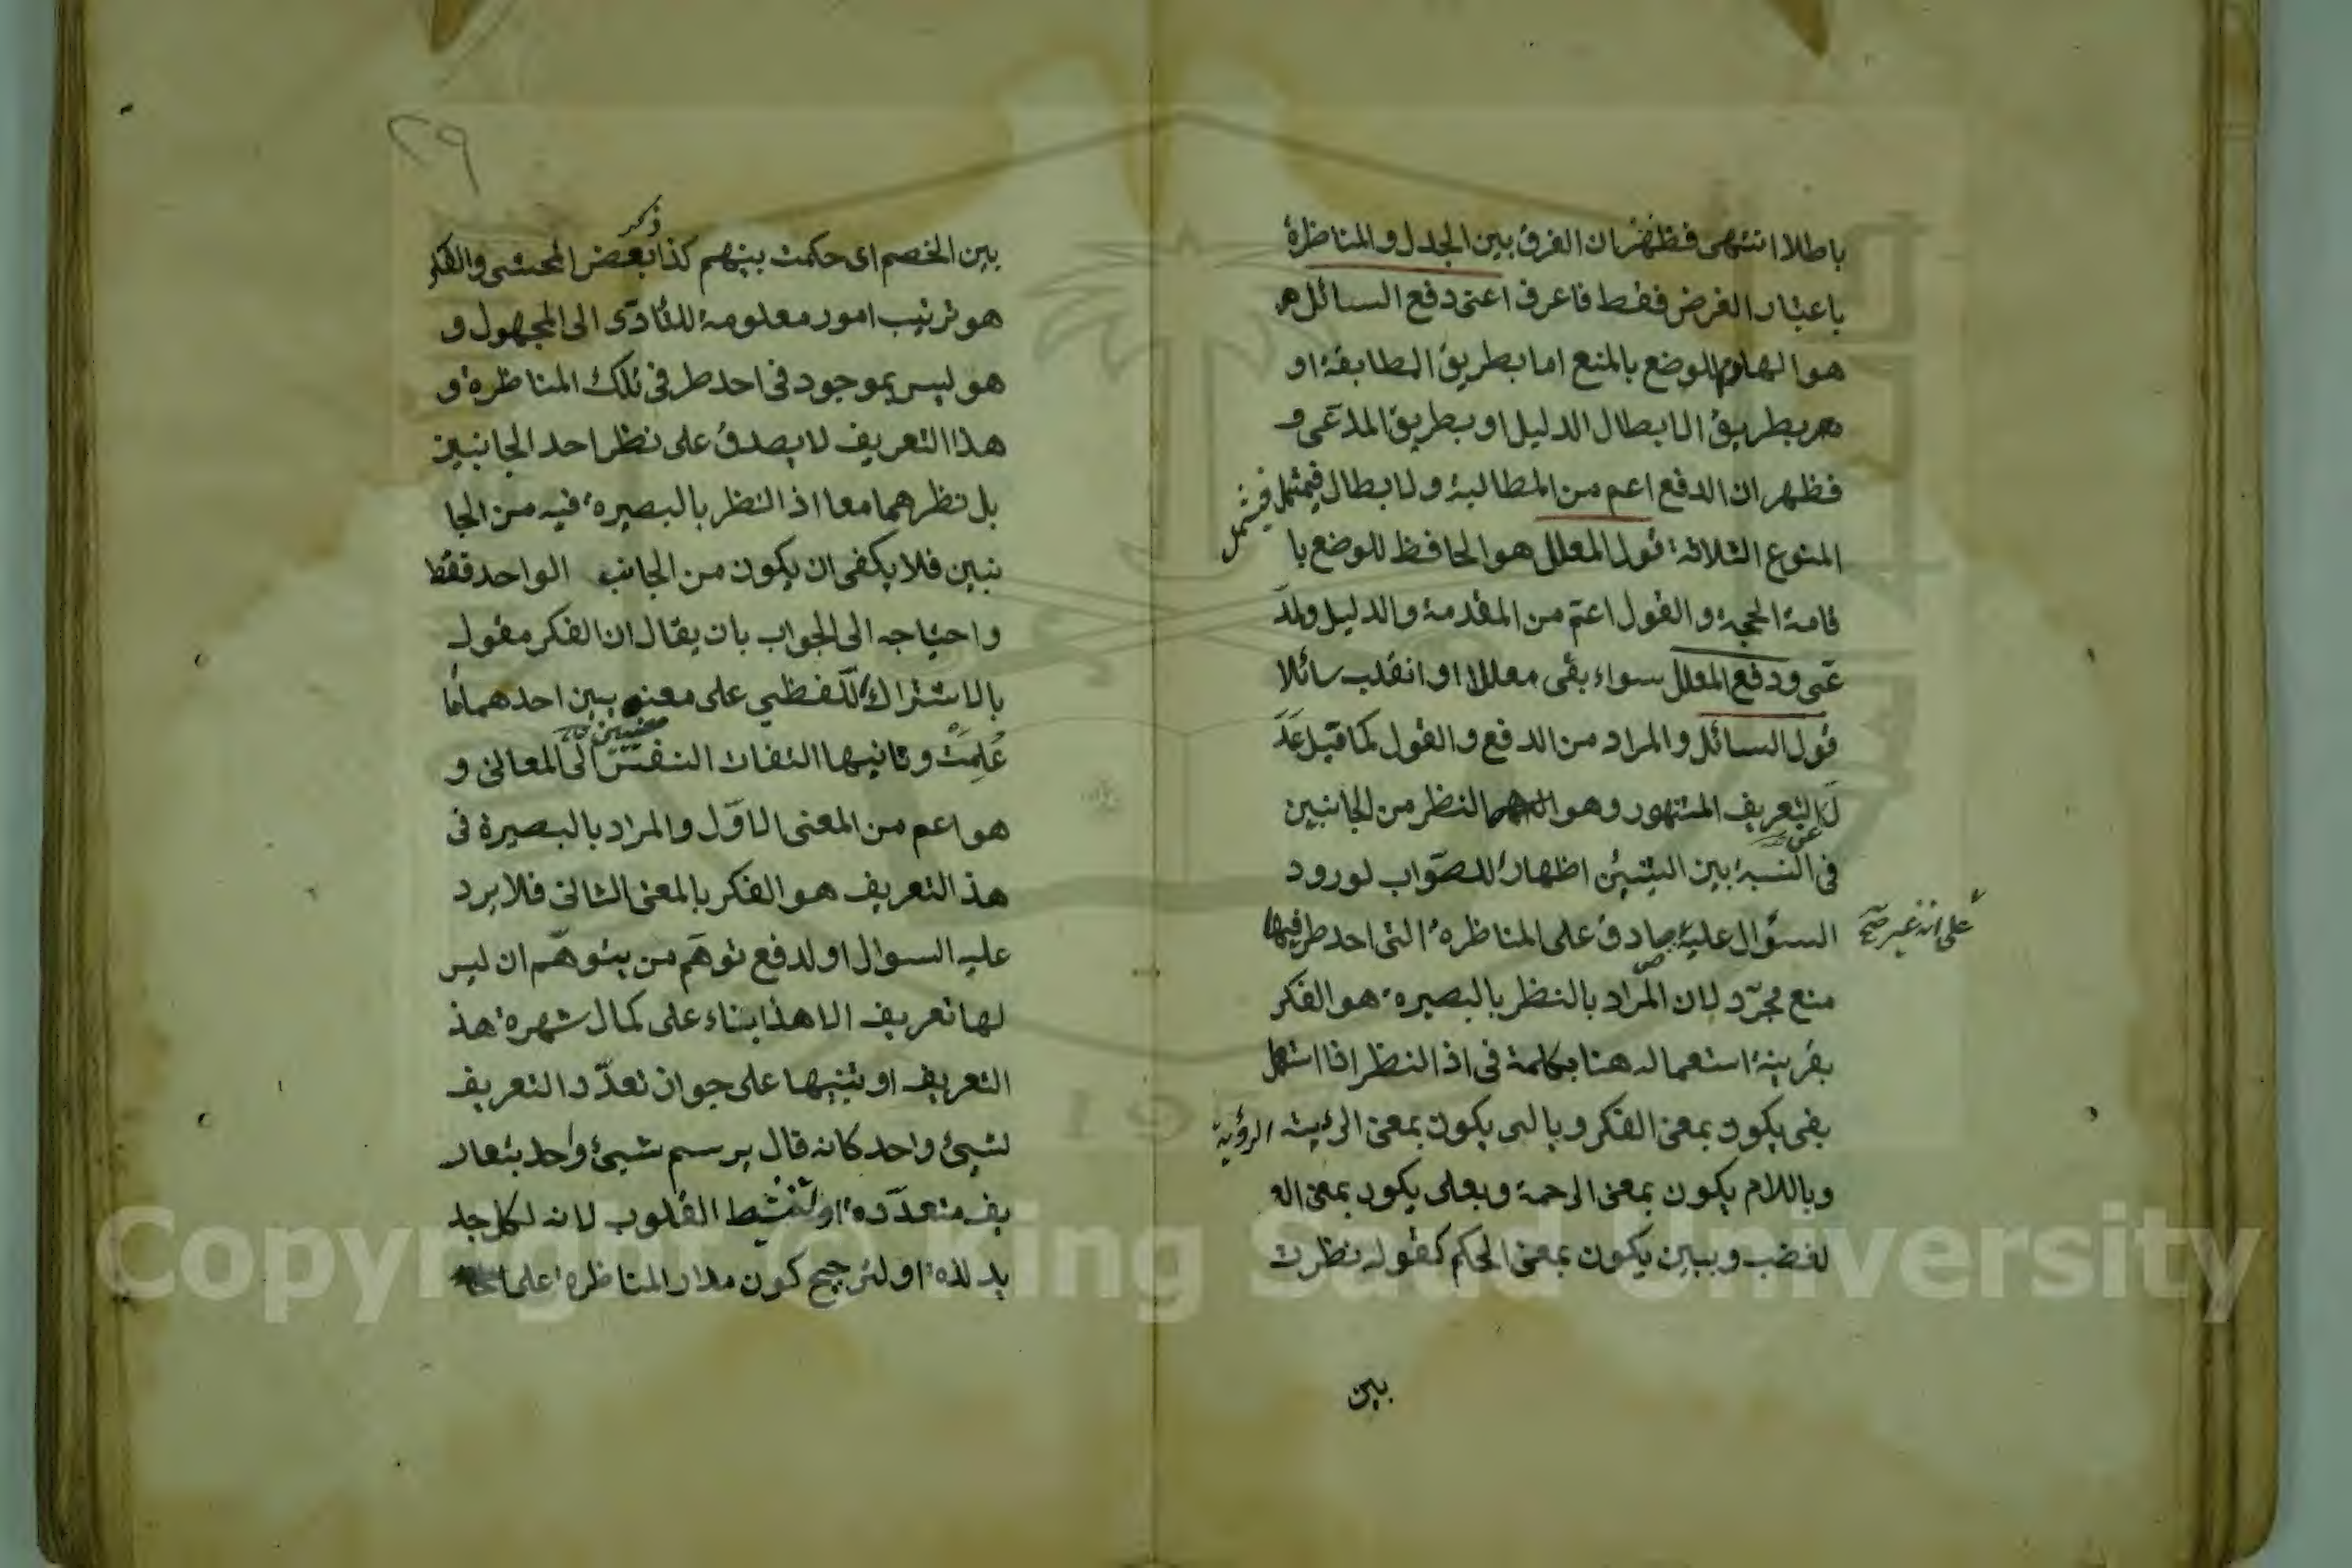 باطلا انتهى فظهر ان الفرق بين الجدل والمناظرة
باعتبار الغرض فقط فاعرف اعنى دفع السائل
هو الهادم للوضع بالمنع اما بطريق المطابقة او
بطريق الابطال الدليل او بطريق المدعى و
فظهر ان الدفع اعم من المطالبة ولابطال فيشمل
فيشمل
المنوع الثلاثة قول المعلل هو الحافظ للوضع با
قامة الحجة والقول اعم من المقدمة والدليل ولمد
عى ودفع المعلل سواء بقى معللا او انقلب سائلا
قول السائل والمراد من الدفع والقول كما قيل عد
ل التعريف المشهور وهو النظر من الجانبين
عن
فى النسبة بين الشيئين اظهارا للصواب لورود
السؤال عليه صادق على المناظرة التى احد طرفيها
على انه غير صح
منع مجرد لان المراد بالنظر بالبصيرة هو الفكر
بقرينة استعماله هنا بكلمة فى اذ النظر اذا استعمل
بفى يكون بمعنى الفكر وبالى يكون بمعنى الرئية
الرؤية
وباللام يكون بمعنى الرحمة وبعلى يكون بمعنى الغ
لغضب وببين يكون بمعنى الحكم كقوله نظرت
بين
٢٩
ذكر
بين الخصم اى حكمت بينهم كذا بعض المحشى والفكر
هو ترتيب امور معلومة للتادى الى المجهول و
هو ليس بموجود فى احد طرفى تلك المناظرة و
هذا التعريف لا يصدق على نظر احد الجانبين
بل نظرهما معا اذ النظر بالبصيرة فيه من الجا
نبين فلا يكفى ان يكون من الجانب الواحد فقط
واحتياجه الى الجواب بان يقال ان الفكر مقول
بالاشتراك اللفظي على معنيين احدهما ما
معنيين
علمت وثانيها التفات النفس الى المعانى و
هو اعم من المعنى الاول والمراد بالبصيرة فى
هذ التعريف هو الفكر بالمعنى الثانى فلا يرد
عليه السوال او لدفع توهم من يتوهم ان ليس
لها تعريف الا هذا بناء على كمال شهرة هذ
التعريف او تنبيها على جواز تعدد التعريف
لشيئ واحد كانه قال يرسم شيئ واحد بتعار
يف متعددة او لتنشط القلوب لانه لكل جد
يد لذة او لترجيح كون مدار المناظرة على
Copyright © King Saud University